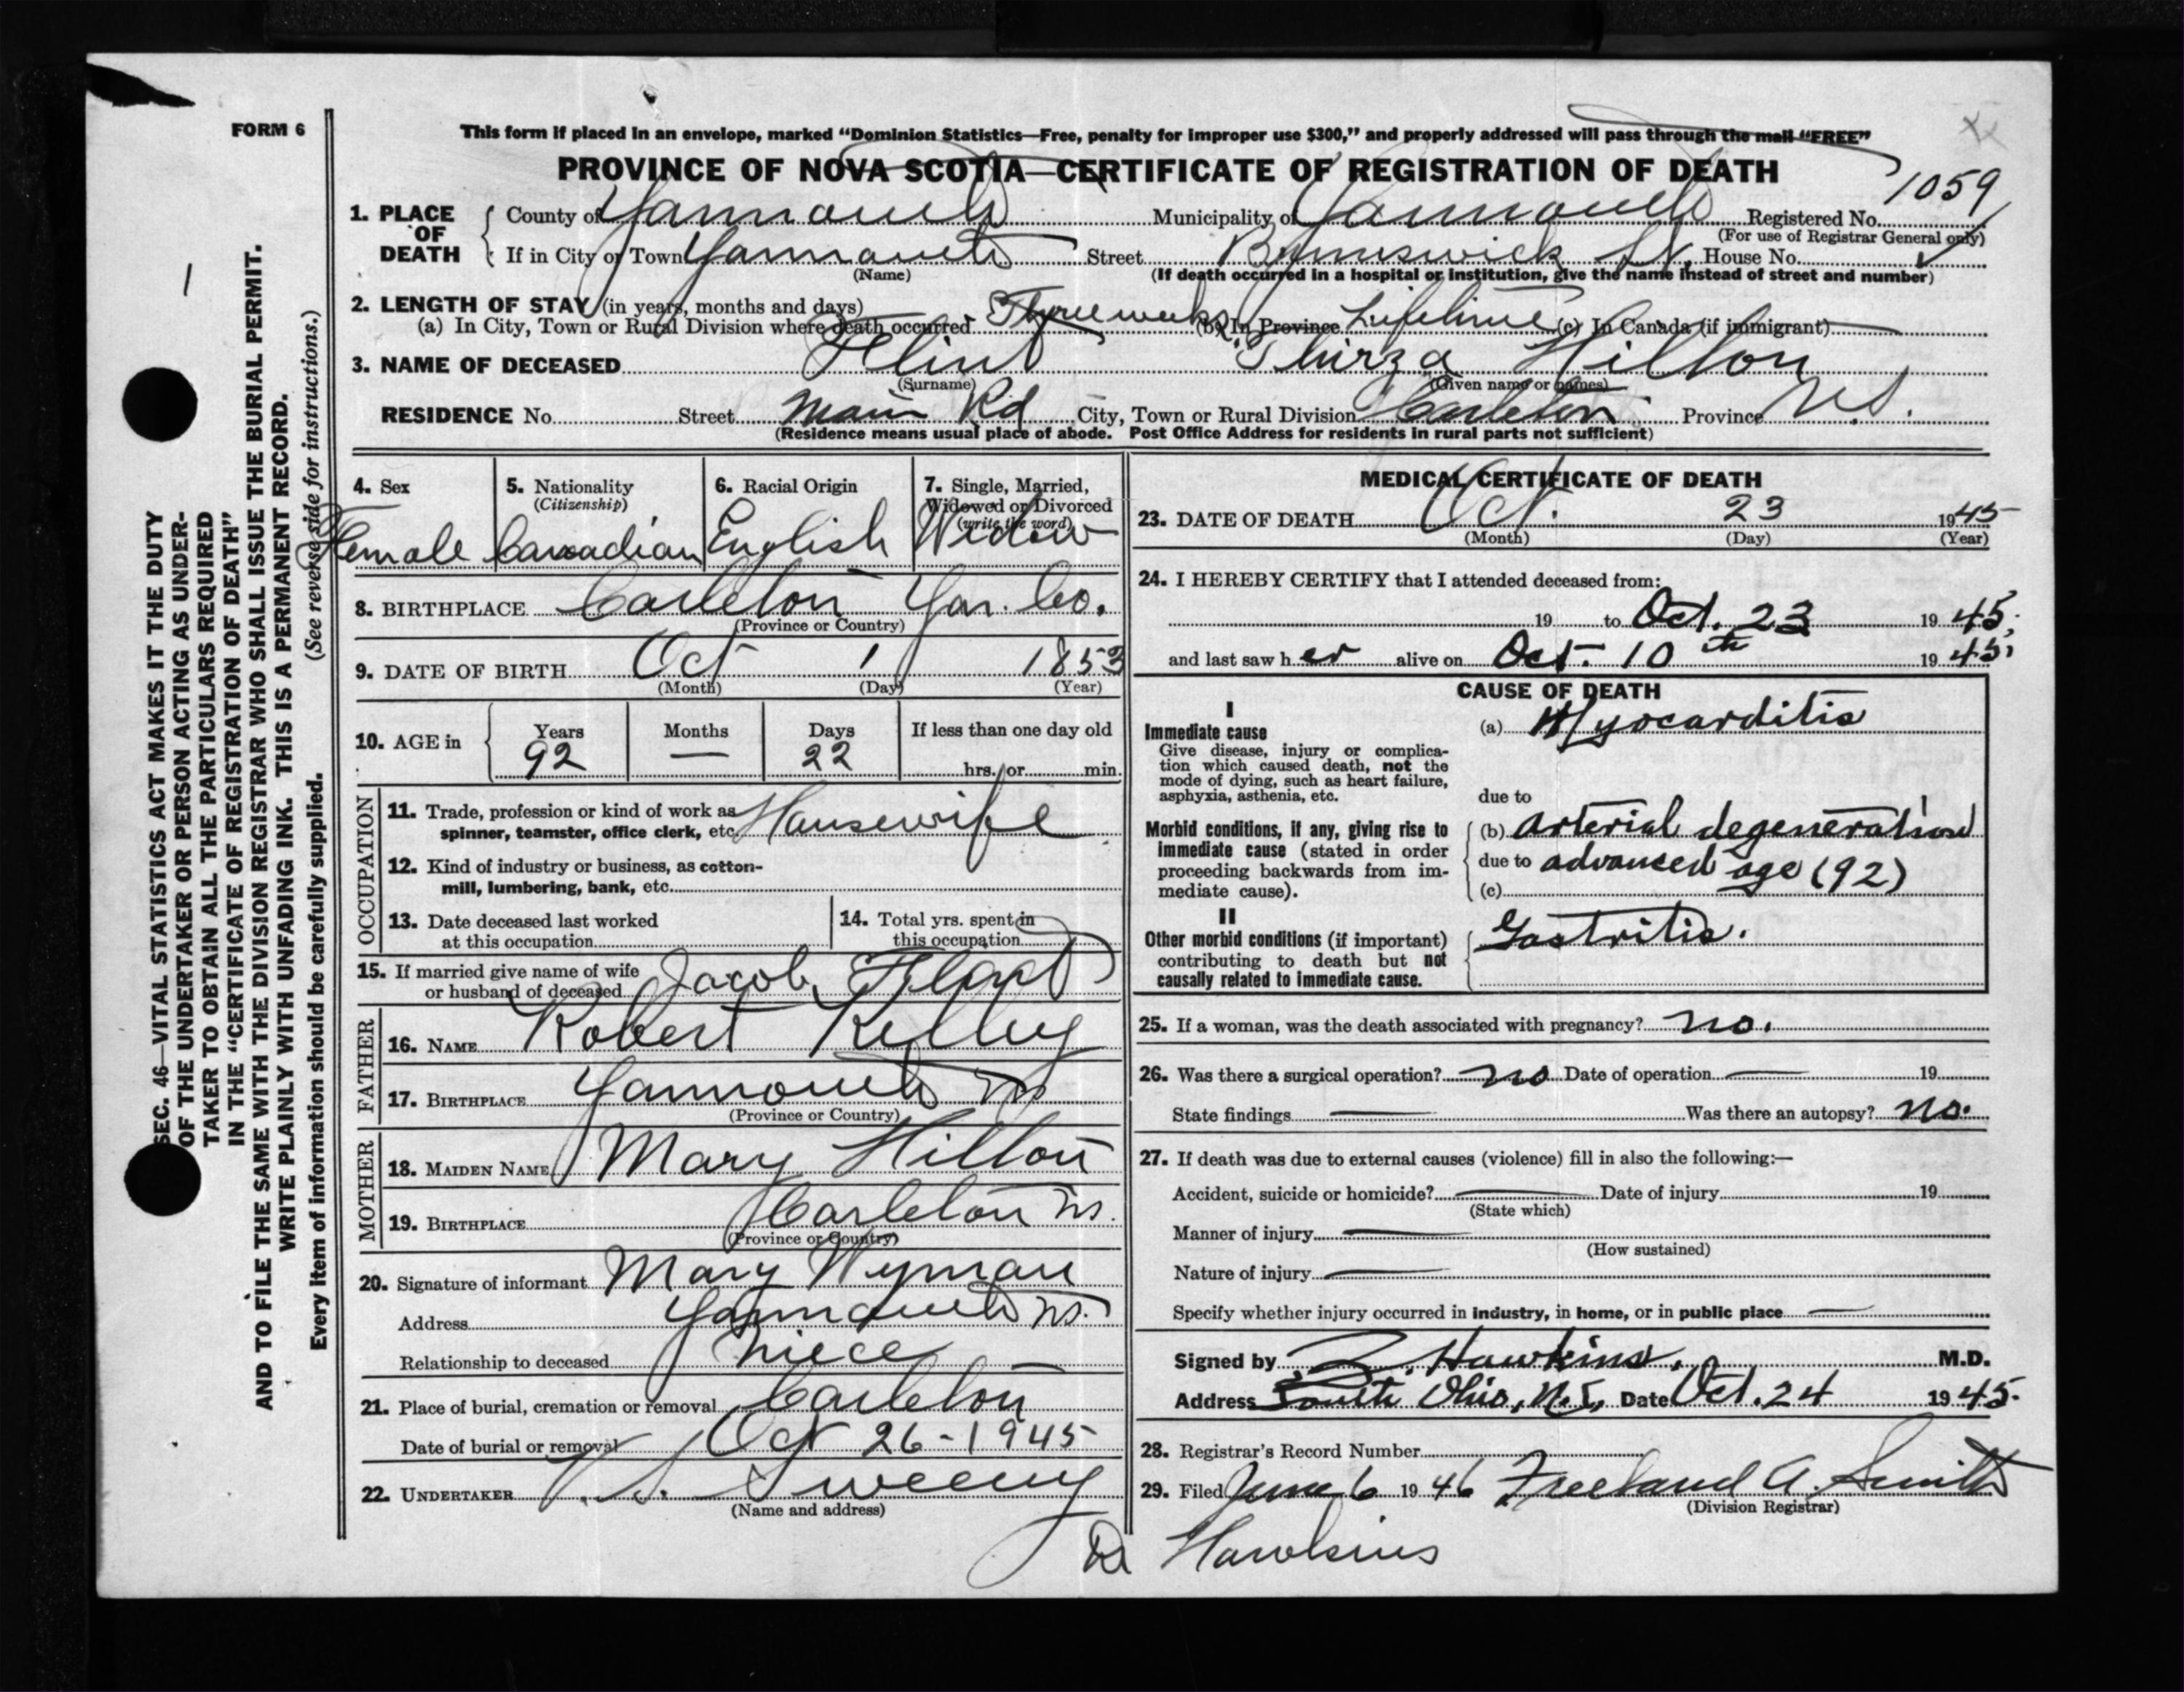 FORM 6
This form if placed in an envelope, marked “Dominion Statistics—Free, penalty for improper use $300,” and properly addressed will pass through the mail “FREE”
PROVINCE OF NOVA SCOTIA—CERTIFICATE OF REGISTRATION OF DEATH
1059
1. PLACE OF DEATH County of Yarmouth Municipality of Yarmouth Registered No.
(For use of Registrar General only)
If in City or Town Yarmouth Street Brunswick St. House No.
(Name) (If death occurred in a hospital or institution, give the name instead of street and number)
2. LENGTH OF STAY (in years, months and days)
(a) In City, Town or Rural Division where death occurred Three weeks (b) In Province Lifetime (c) In Canada (if immigrant)
3. NAME OF DECEASED Flint Thirza Hilton
(Surname) (Given name or names)
RESIDENCE No. Street Main Rd City, Town or Rural Division Carleton Province N.S.
(Residence means usual place of abode. Post Office Address for residents in rural parts not sufficient)
4. Sex Female
5. Nationality (Citizenship) Canadian
6. Racial Origin English
7. Single, Married, Widowed or Divorced (write the word) Widow
8. BIRTHPLACE Carleton Yar. Co.
(Province or Country)
9. DATE OF BIRTH Oct 1 1853
(Month) (Day) (Year)
10. AGE in Years Months Days If less than one day old
92 — 22 hrs. or min.
OCCUPATION
11. Trade, profession or kind of work as
spinner, teamster, office clerk, etc. Housewife
12. Kind of industry or business, as cotton-
mill, lumbering, bank, etc.
13. Date deceased last worked
at this occupation
14. Total yrs. spent in
this occupation
15. If married give name of wife
or husband of deceased Jacob Flint
FATHER
16. NAME Robert Kelley
17. BIRTHPLACE Yarmouth NS
(Province or Country)
MOTHER
18. MAIDEN NAME Mary Hilton
19. BIRTHPLACE Carleton NS.
(Province or Country)
20. Signature of informant Mary Wyman
Address Yarmouth NS.
Relationship to deceased Niece
21. Place of burial, cremation or removal Carleton
Date of burial or removal Oct 26-1945
22. UNDERTAKER V. S. Sweeny
(Name and address)
MEDICAL CERTIFICATE OF DEATH
23. DATE OF DEATH Oct. 23 1945
(Month) (Day) (Year)
24. I HEREBY CERTIFY that I attended deceased from:
19 to Oct. 23 19 45.
and last saw h er alive on Oct. 10th 19 45.
CAUSE OF DEATH
I
Immediate cause
Give disease, injury or complica-
tion which caused death, not the
mode of dying, such as heart failure,
asphyxia, asthenia, etc.
(a) Myocarditis
due to
Morbid conditions, if any, giving rise to
immediate cause (stated in order
proceeding backwards from im-
mediate cause).
(b) Arterial degeneration
due to advanced age (92)
(c)
II
Other morbid conditions (if important)
contributing to death but not
causally related to immediate cause.
Gastritis.
25. If a woman, was the death associated with pregnancy? no.
26. Was there a surgical operation? no Date of operation — 19
State findings — Was there an autopsy? no.
27. If death was due to external causes (violence) fill in also the following:—
Accident, suicide or homicide? — Date of injury 19
(State which)
Manner of injury —
(How sustained)
Nature of injury —
Specify whether injury occurred in industry, in home, or in public place —
Signed by Hawkins. M.D.
Address South Ohio, N.S. Date Oct. 24 19 45.
28. Registrar's Record Number
29. Filed June 6 19 46 Freeland A. Smith
(Division Registrar)
Dr Hawkins
SEC. 46—VITAL STATISTICS ACT MAKES IT THE DUTY
OF THE UNDERTAKER OR PERSON ACTING AS UNDER-
TAKER TO OBTAIN ALL THE PARTICULARS REQUIRED
IN THE “CERTIFICATE OF REGISTRATION OF DEATH”
AND TO FILE THE SAME WITH THE DIVISION REGISTRAR WHO SHALL ISSUE THE BURIAL PERMIT.
WRITE PLAINLY WITH UNFADING INK. THIS IS A PERMANENT RECORD.
Every item of information should be carefully supplied. (See reverse side for instructions.)